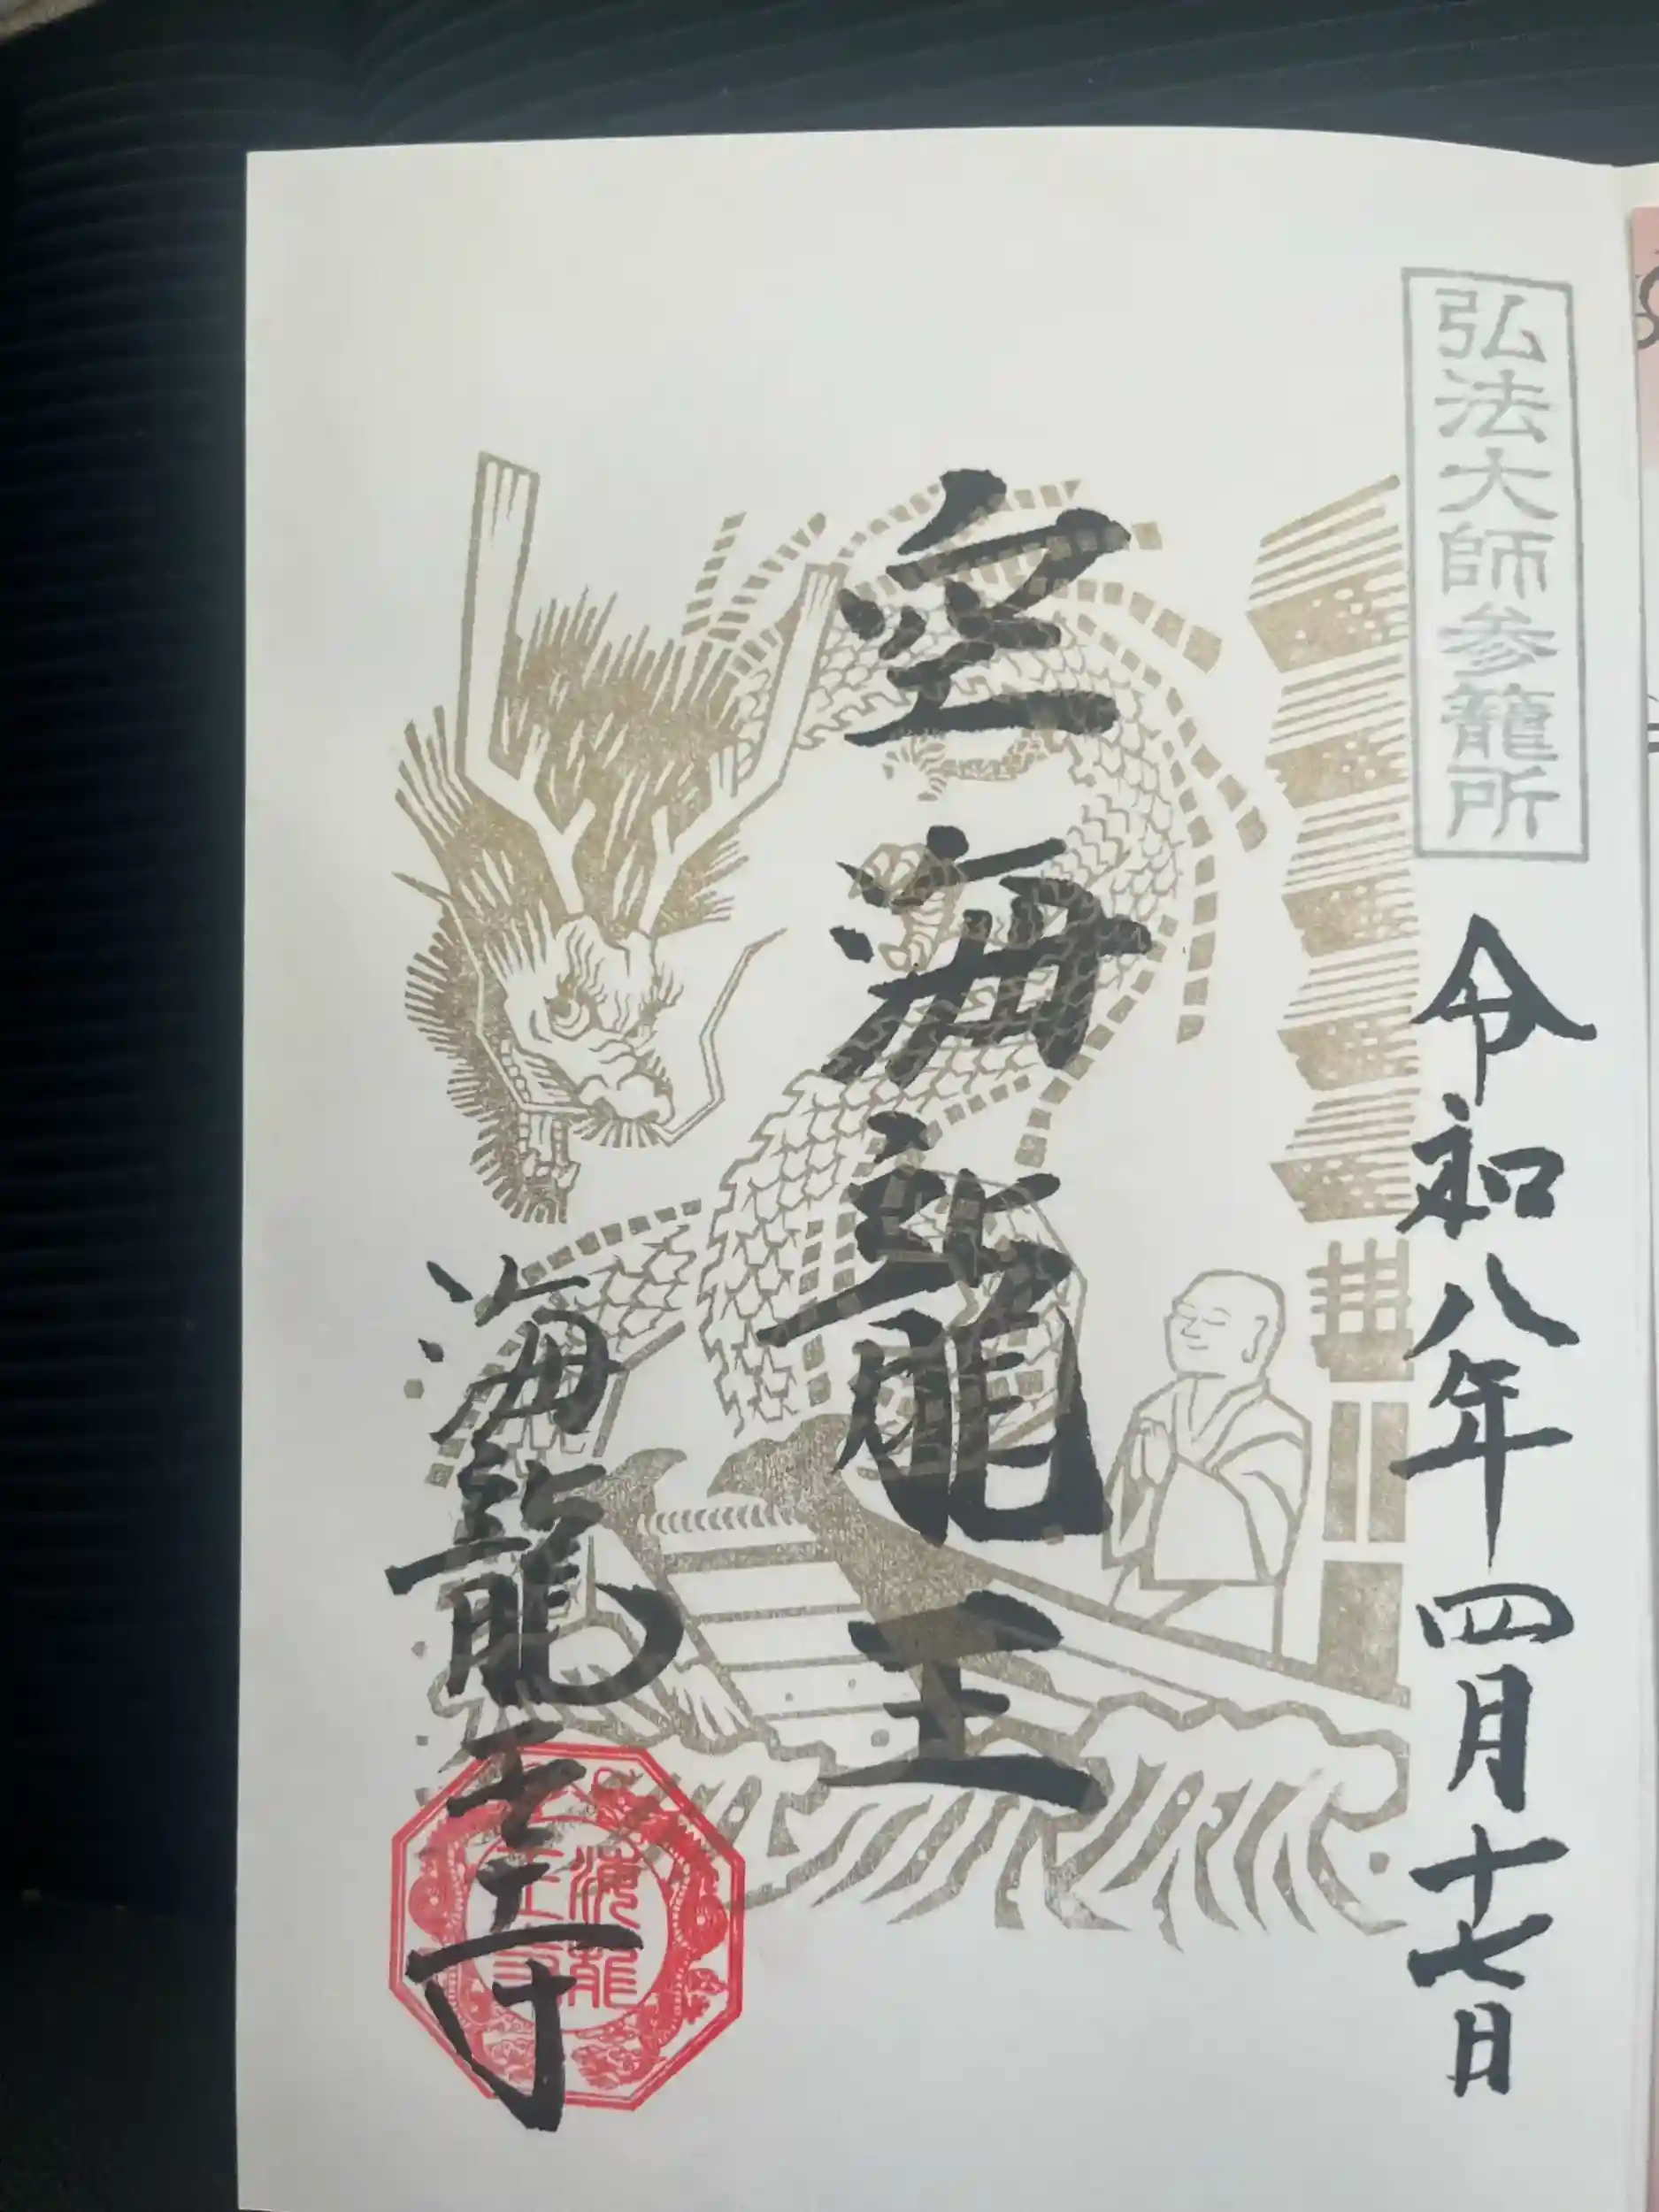 弘法大師参籠所
令和八年四月十七日
空海龍王
海龍王寺
海龍
王寺